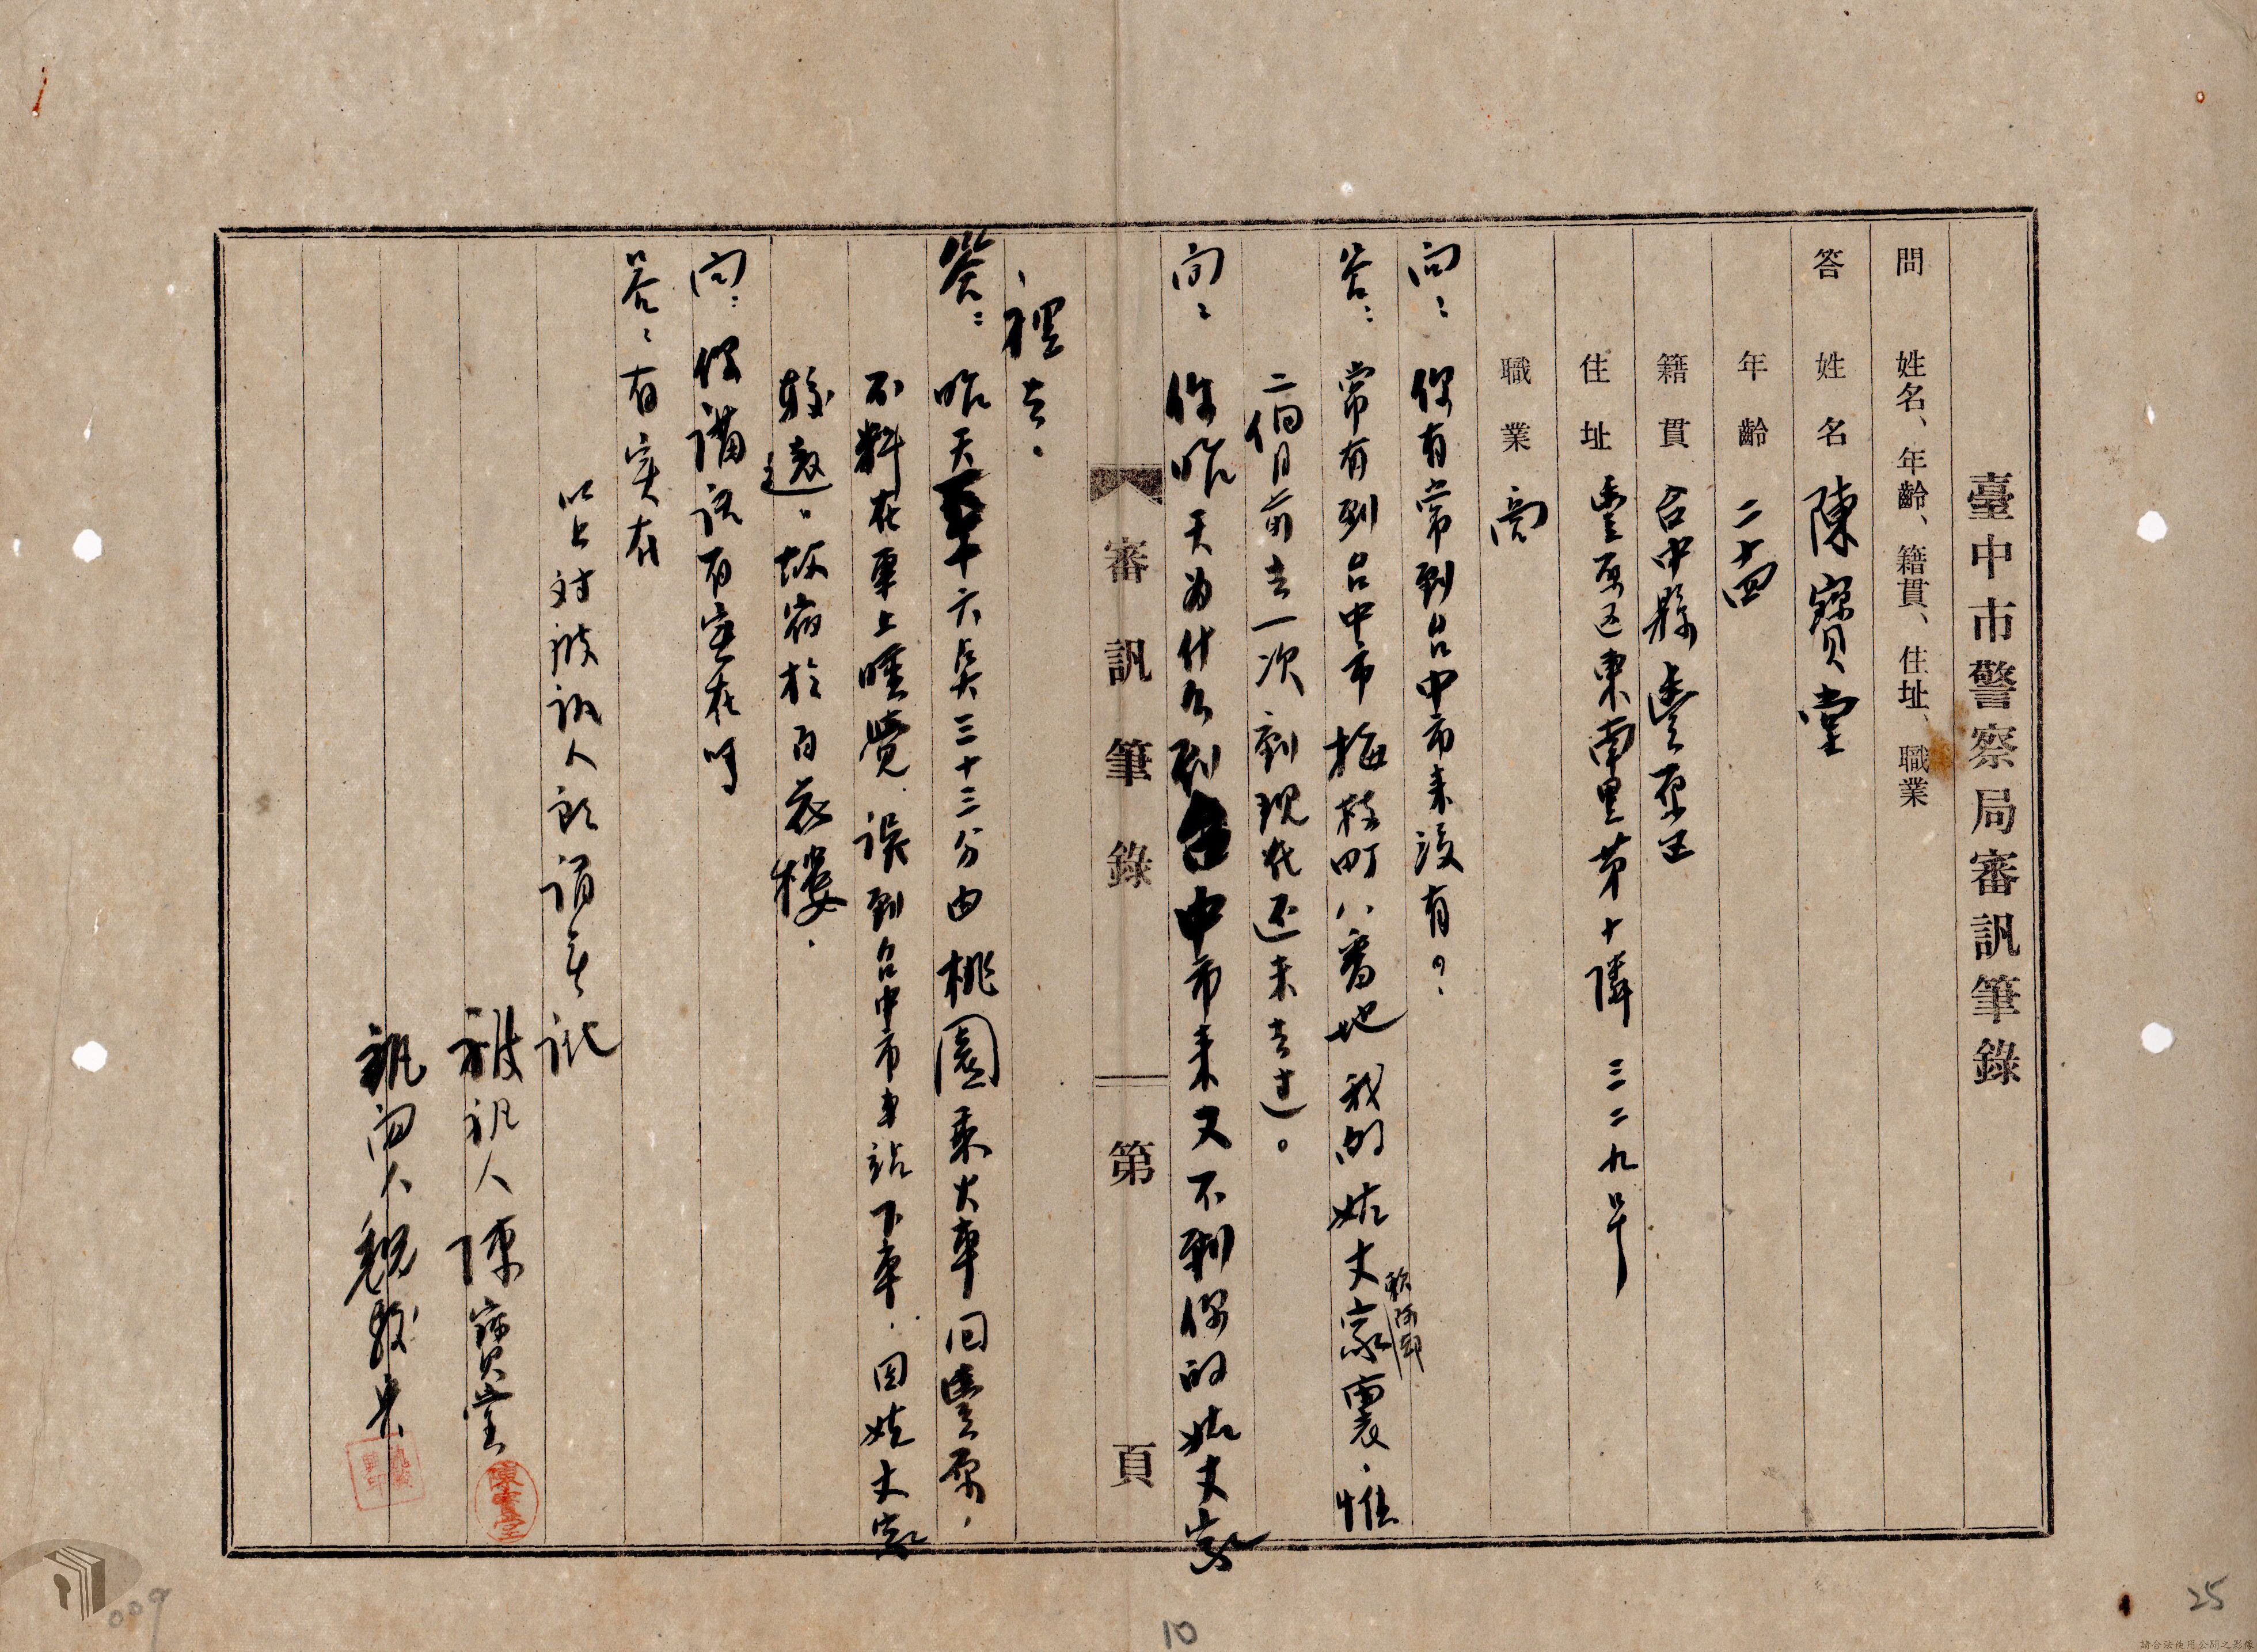 臺中市警察局審訊筆錄
問 姓名、年齡、籍貫、住址、職業
答 姓名 陳寶堂
年齡 二十四
籍貫 台中縣豐原区
住址 豐原区東南里第十隣三二九号
職業 商
問：你有常到台中市来没有？
答：常有到台中市梅枝町八番地我的姑丈家裏，惟
二個月前去一次到現在还未去过。
問：你昨天为什么到台中市来又不到你的姑丈家
審訊筆錄 第 頁
裡去。
答：昨天下午六点三十三分由桃園乘火車回豐原，
不料在車上睡覚誤到台中市車站下車，因姑丈家
較遠，故宿於百花樓。
問：你講話有实在吗
答：有实在
以上对被訊人朗誦無訛
被訊人 陳寶堂
陳寶堂
訊問人 魏
009
10
25
請合法使用公開之影像